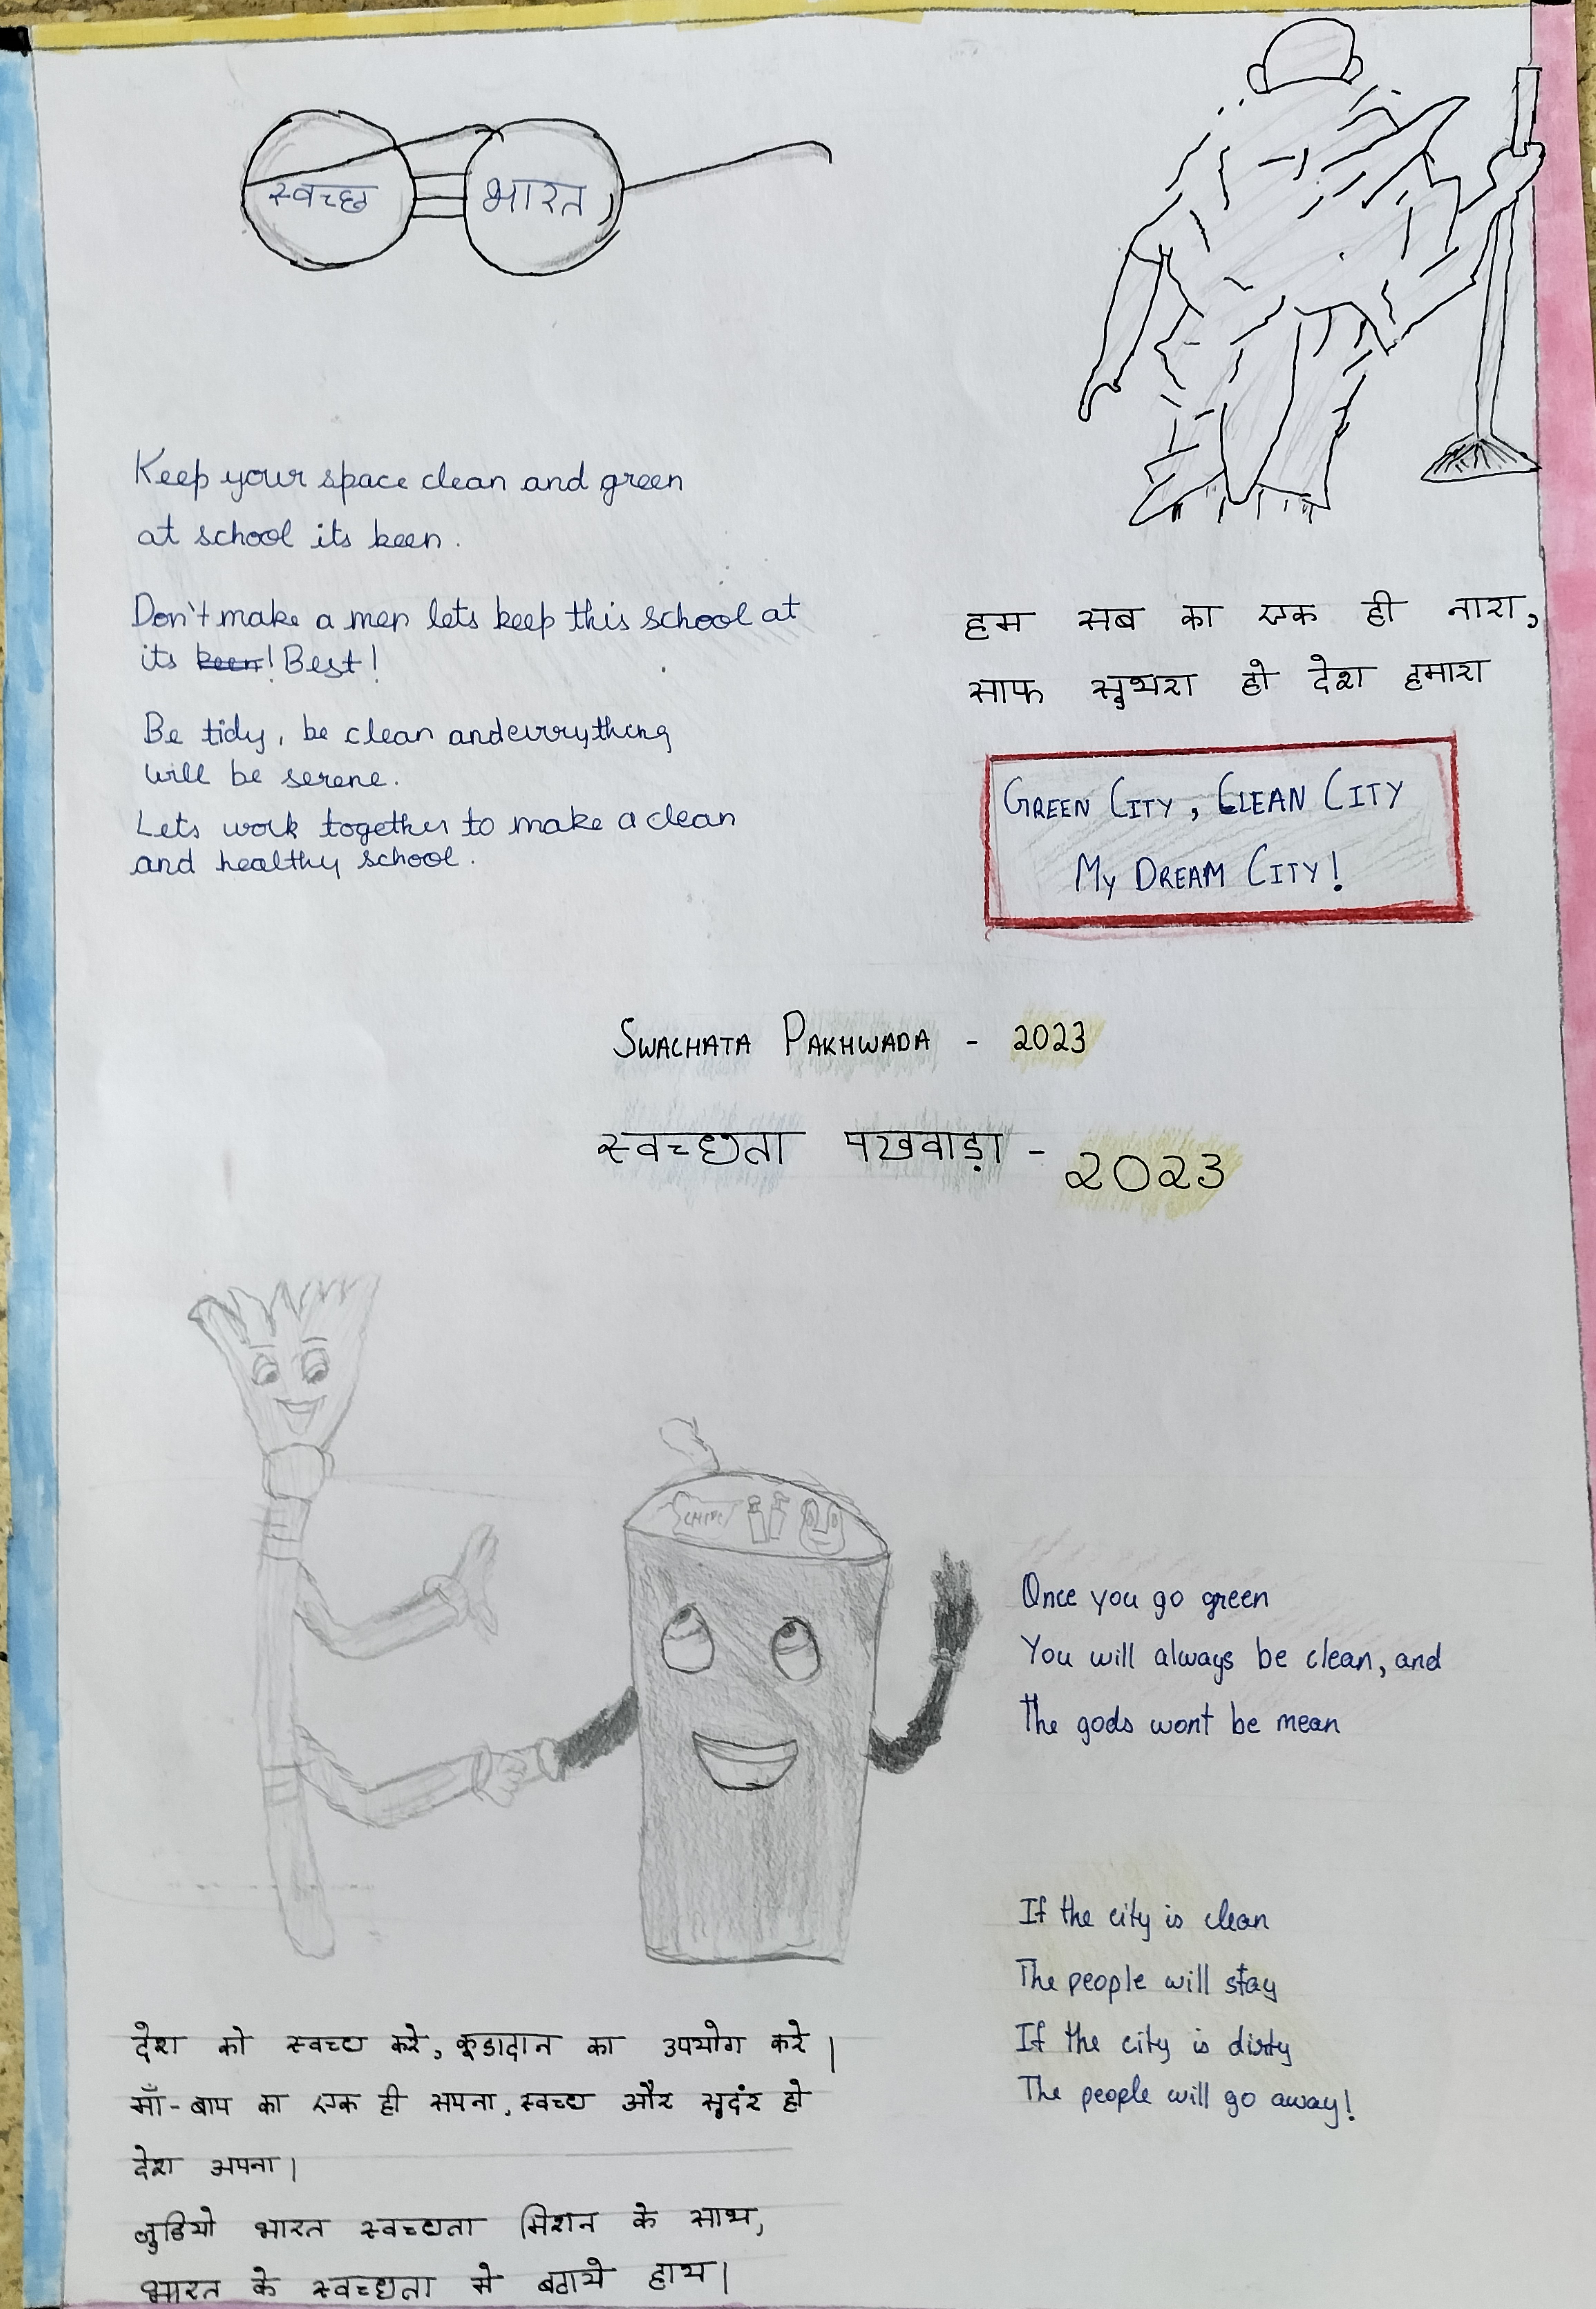 स्वच्छ भारत
Keep your space clean and green
at school its keen.
Don't make a mess lets keep this school at
its keen! Best!
Be tidy, be clean and everything
will be serene.
Lets work together to make a clean
and healthy school.
हम सब का एक ही नारा,
साफ सुथरा हो देश हमारा
GREEN CITY, CLEAN CITY
MY DREAM CITY!
SWACHATA PAKHWADA - 2023
स्वच्छता पखवाड़ा - 2023
CHIPS
Once you go green
You will always be clean, and
The gods wont be mean
If the city is clean
The people will stay
If the city is dirty
The people will go away!
देश को स्वच्छ करे, कूडादान का उपयोग करे।
माँ-बाप का एक ही सपना, स्वच्छ और सुदंर हो
देश अपना।
जुडियो भारत स्वच्छता मिशन के साथ,
भारत के स्वच्छता मे बठाये हाथ।